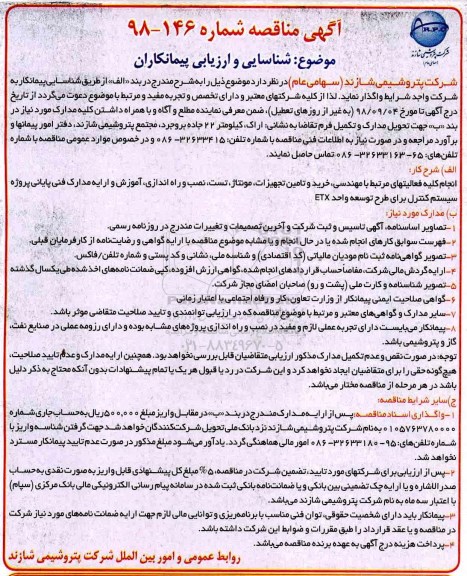 آگهی مناقصه شماره ۱۴۶-۹۸
موضوع: شناسایی و ارزیابی پیمانکاران
A.R.P.C
شرکت پتروشیمی شازند
شرکت پتروشیمی شازند (سهامی عام) در نظر دارد موضوع ذیل را به شرح مندرج در بند «الف» از طریق شناسایی پیمانکار به
شرکت واجد شرایط واگذار نماید. لذا از کلیه شرکتهای معتبر و دارای تخصص و تجربه مفید و مرتبط با موضوع دعوت می‌گردد از تاریخ
درج آگهی تا مورخ ۹۸/۰۹/۰۴ (به غیر از روزهای تعطیل)، ضمن معرفی نماینده مطلع و آگاه و با همراه داشتن کلیه مدارک مورد نیاز در
بند «ب» جهت تحویل مدارک و تکمیل فرم تقاضا به نشانی: اراک، کیلومتر ۲۲ جاده بروجرد، مجتمع پتروشیمی شازند، دفتر امور پیمانها و
برآورد مراجعه و در صورت نیاز به اطلاعات فنی مناقصه با شماره تلفن: ۳۲۶۳۳۴۱۵-۰۸۶ و در خصوص موارد عمومی مناقصه با شماره
تلفن‌های: ۶۵-۳۲۶۳۳۱۶۳-۰۸۶ تماس حاصل نمایند.
الف) شرح کار:
انجام کلیه فعالیتهای مرتبط با مهندسی، خرید و تامین تجهیزات، مونتاژ، تست، نصب و راه اندازی، آموزش و ارایه مدارک فنی پایانی پروژه
سیستم کنترل برای طرح توسعه واحد ETX
ب) مدارک مورد نیاز:
۱-تصاویر اساسنامه، آگهی تاسیس و ثبت شرکت و آخرین تصمیمات و تغییرات مندرج در روزنامه رسمی.
۲-فهرست سوابق کارهای انجام شده یا در حال انجام و یا مشابه موضوع مناقصه با ارایه گواهی و رضایت‌نامه از کارفرمایان قبلی.
۳-تصویر گواهی‌نامه ثبت نام مودیان مالیاتی (کد اقتصادی) و شناسه ملی، نشانی و کد پستی و شماره تلفن/فاکس.
۴-ارایه گردش مالی شرکت، مفاصاحساب قراردادهای انجام شده، گواهی ارزش افزوده، کپی ضمانت نامه‌های اخذ شده طی یکسال گذشته
۵-تصویر شناسنامه و کارت ملی (پشت و رو) صاحبان امضای مجاز شرکت.
۶-گواهی صلاحیت ایمنی پیمانکار از وزارت تعاون، کار و رفاه اجتماعی با اعتبار زمانی
۷-سایر مدارک و گواهی‌های معتبر و مرتبط با موضوع مناقصه که در ارزیابی توانمندی و تایید صلاحیت متقاضی موثر باشد.
۸-پیمانکار می‌بایست دارای تجربه عملی لازم و مفید در نصب و راه اندازی پروژه‌های مشابه بوده و دارای رزومه عملی در صنایع نفت،
گاز و پتروشیمی باشد.
توجه: در صورت نقص و عدم تکمیل مدارک مذکور ارزیابی متقاضیان قابل بررسی نخواهد بود. همچنین ارایه مدارک و عدم تایید صلاحیت،
هیچگونه حقی را برای متقاضیان ایجاد نخواهد کرد و این شرکت در رد یا قبول هر یک یا تمام پیشنهادات بدون آنکه محتاج به ذکر دلیل
باشد در هر مرحله از مناقصه مختار می‌باشد.
ج) سایر شرایط مناقصه:
۱-واگذاری اسناد مناقصه: پس از ارایه مدارک مندرج در بند «ب» در مقابل واریز مبلغ ۵۰۰,۰۰۰ ریال به حساب جاری شماره
۰۱۰۵۷۶۳۷۸۰۰۰۰ به نام شرکت پتروشیمی شازند نزد بانک ملی تحویل شرکت‌کنندگان خواهد شد جهت گرفتن شناسه واریز با
شماره تلفن‌های: ۹۵-۳۲۶۳۳۱۸۰-۰۸۶ امور مالی هماهنگی گردد. یادآور می‌شود مبلغ مذکور در صورت عدم تایید پیمانکار مسترد
نخواهد شد.
۲-پس از ارزیابی برای شرکتهای مورد تایید، تضمین شرکت در مناقصه، ۵٪ مبلغ کل پیشنهادی قابل واریز به صورت نقدی به حساب
صدرالاشاره و یا ارایه چک تضمینی بین بانکی و یا ضمانت‌نامه بانکی ثبت شده در سامانه پیام رسانی الکترونیکی مالی بانک مرکزی (سپام)
با اعتبار سه ماه به نام شرکت پتروشیمی شازند می‌باشد.
۳-پیمانکار باید دارای شخصیت حقوقی، توان فنی مناسب با برنامه‌ریزی و توانایی مالی لازم جهت ارایه ضمانت نامه‌های مورد نیاز شرکت
در مناقصه و یا عقد قرارداد را طبق مقررات و ضوابط این شرکت داشته باشد.
۴-پرداخت هزینه درج آگهی به عهده برنده مناقصه می‌باشد.
روابط عمومی و امور بین الملل شرکت پتروشیمی شازند
۰۲۱-۸۸۳۴۹۶۷۰-۵